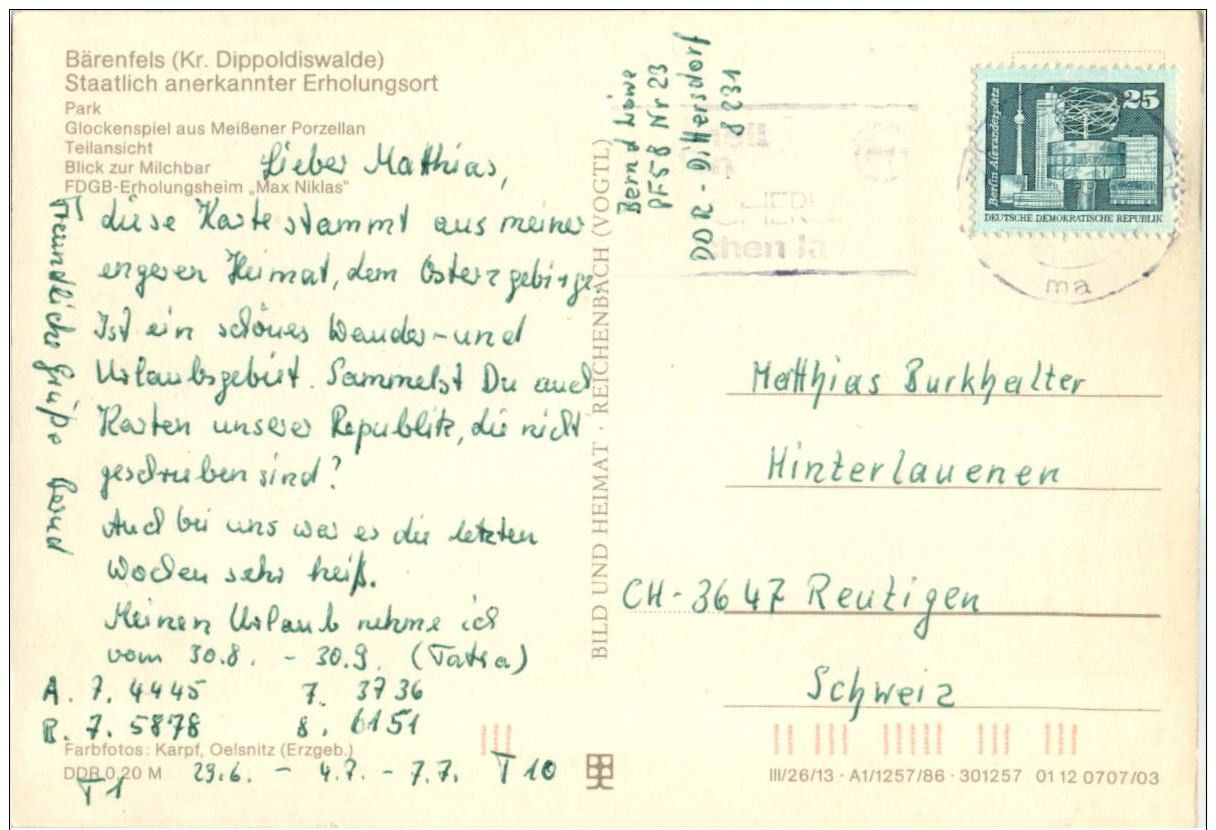 Bärenfels (Kr. Dippoldiswalde)
Staatlich anerkannter Erholungsort
Park
Glockenspiel aus Meißener Porzellan
Teilansicht
Blick zur Milchbar
FDGB-Erholungsheim „Max Niklas"
Lieber Matthias,
diese Karte stammt aus meiner
engeren Heimat, dem Osterzgebirge.
Ist ein schönes Wander- und
Urlaubsgebiet. Sammelst Du auch
Karten unserer Republik, die nicht
geschrieben sind?
Auch bei uns war es die letzten
Wochen sehr heiß.
Meinen Urlaub nehme ich
vom 30.8. - 30.9. (Tatra)
A. 7. 4445 7. 3736
B. 7. 5878 8. 6151
Freundliche Grüße Bernd
Farbfotos: Karpf, Oelsnitz (Erzgeb.)
DDR 0,20 M
29.6. - 4.7. - 7.7. T 10
T1
BILD UND HEIMAT · REICHENBACH (VOGTL)
Bernd Löwe
PF 58 Nr 23
DDR - Dittersdorf
8231
chen la
Berlin Alexanderplatz
25
DEUTSCHE DEMOKRATISCHE REPUBLIK
ma
Matthias Burkhalter
Hinterlauenen
CH-3647 Reutigen
Schweiz
III/26/13 · A1/1257/86 · 301257 01 12 0707/03